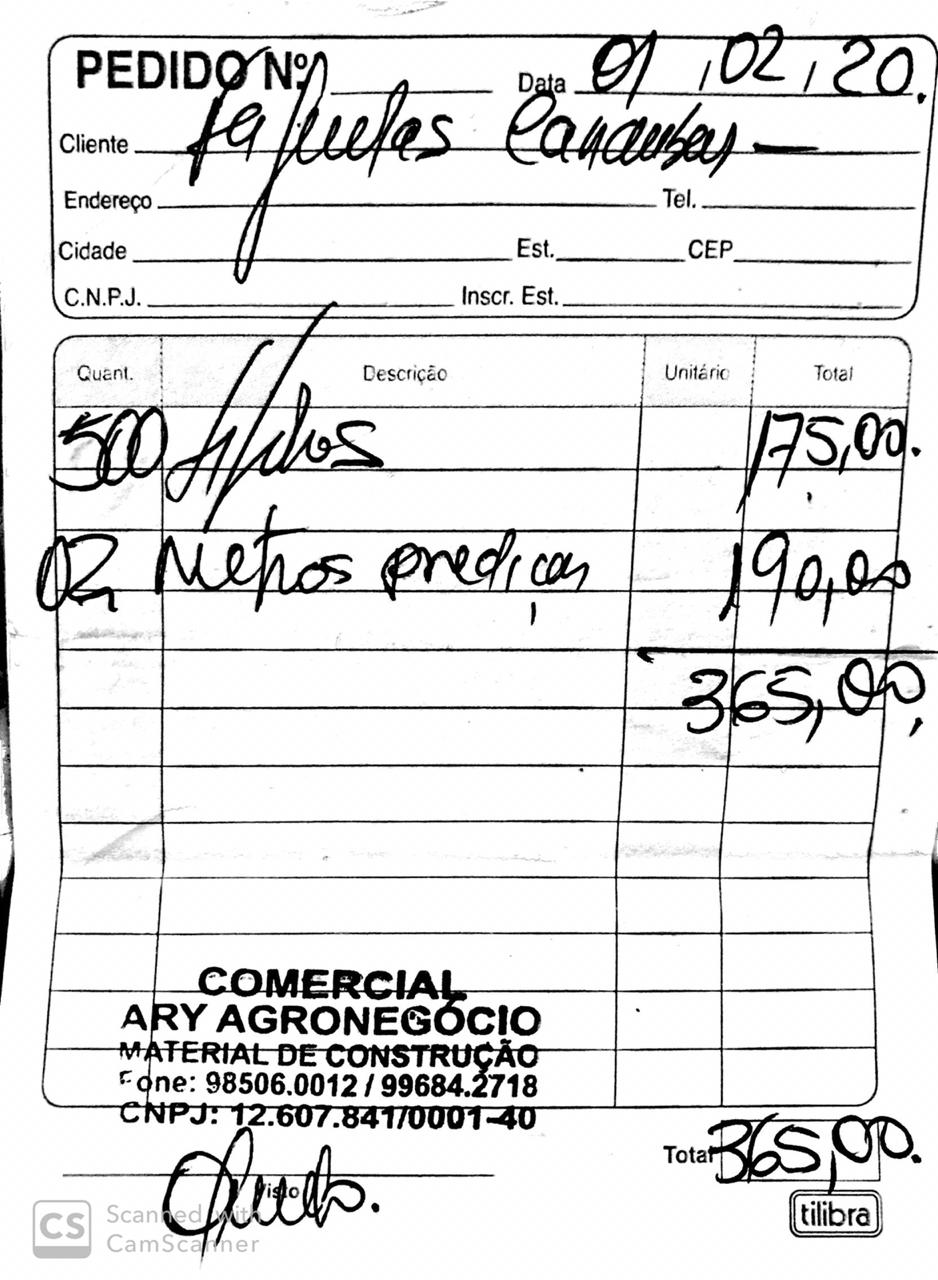 PEDIDO Nº Data 01,02,20.
Cliente
Endereço Tel.
Cidade Est. CEP
C.N.P.J. Inscr. Est.
Quant. Descrição Unitário Total
500 175,00.
02 Metros 190,00
365,00,
COMERCIAL
ARY AGRONEGÓCIO
MATERIAL DE CONSTRUÇÃO
Fone: 98506.0012 / 99684.2718
CNPJ: 12.607.841/0001-40
Total 365,00.
Visto
tilibra
CS Scanned with
CamScanner